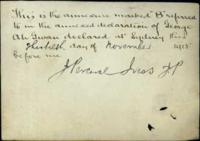 This is the annexure marked "B" referred
to in the annexed declaration of George
Ah Gwan declared at Sydney this
Thirtieth day of November 1915
Before me
J Percival Ives JP